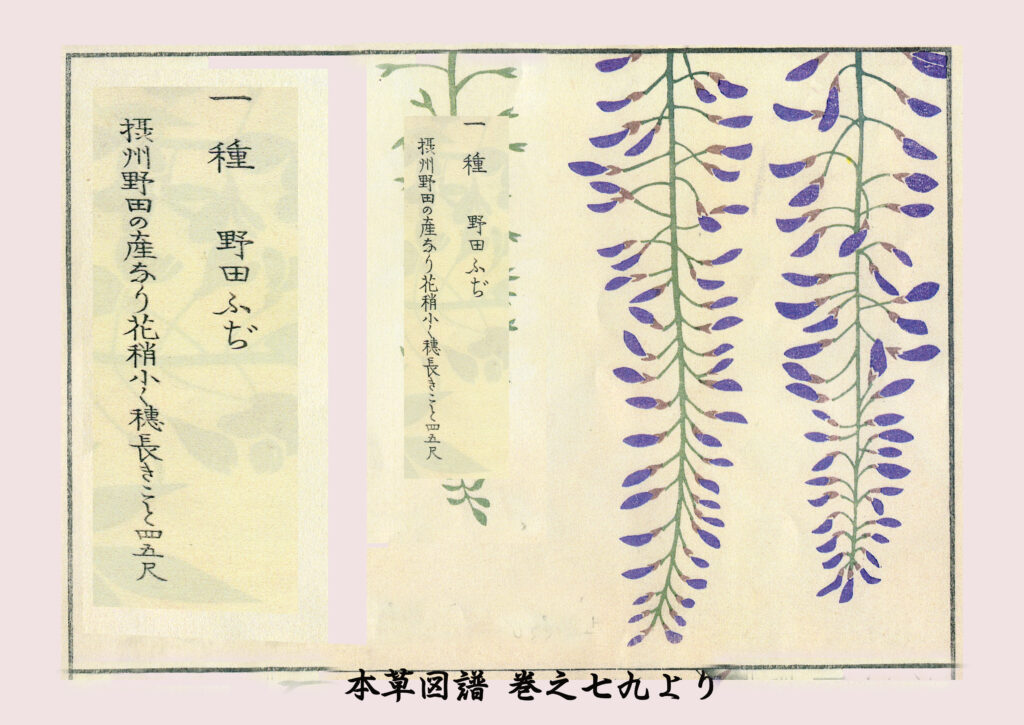 一種 野田ふぢ
摂州野田の産なり花稍小く穗長きこと四五尺
一種 野田ふぢ
摂州野田の産なり花稍小く穗長きこと四五尺
本草図譜 巻之七九より